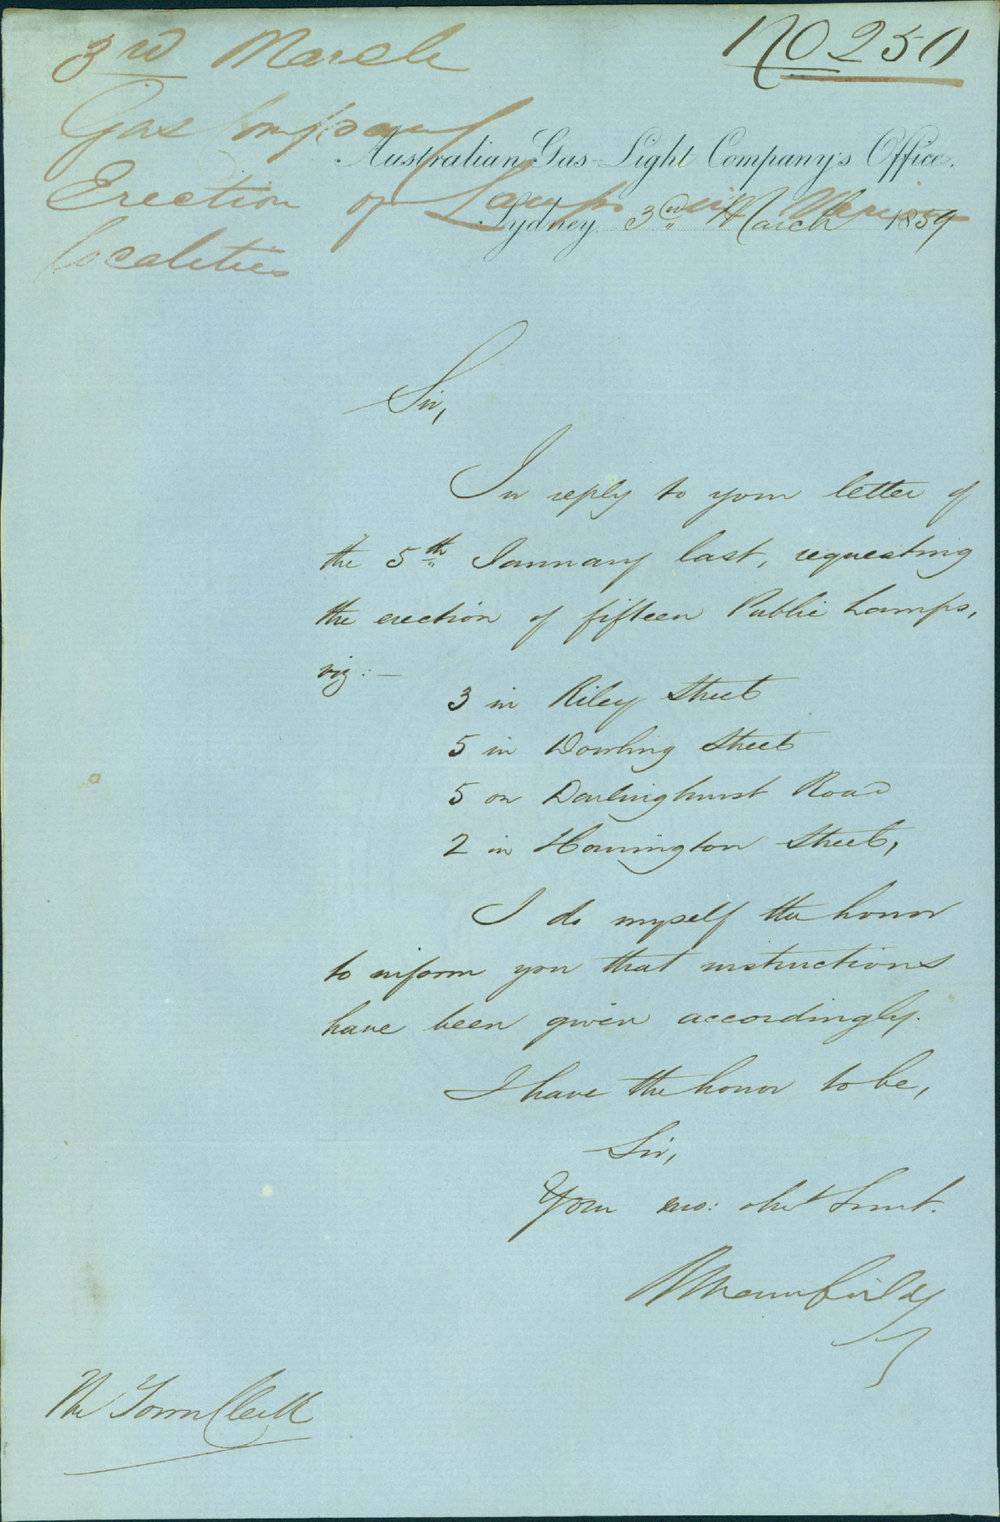 3rd March
No 250
Gas Company
Australian Gas-Light Company's Office.
Erection of Lamps in Various
Sydney, 3rd March 1859
localities
Sir,
In reply to your letter of
the 5th January last, requesting
the erection of fifteen Public Lamps,
viz:—
3 in Riley Street
5 in Dowling Street
5 on Darlinghurst Road
2 in Hannington Street,
I do myself the honor
to inform you that instructions
have been given accordingly.
I have the honor to be,
Sir,
Your mo: obt Servt.
The Town Clerk